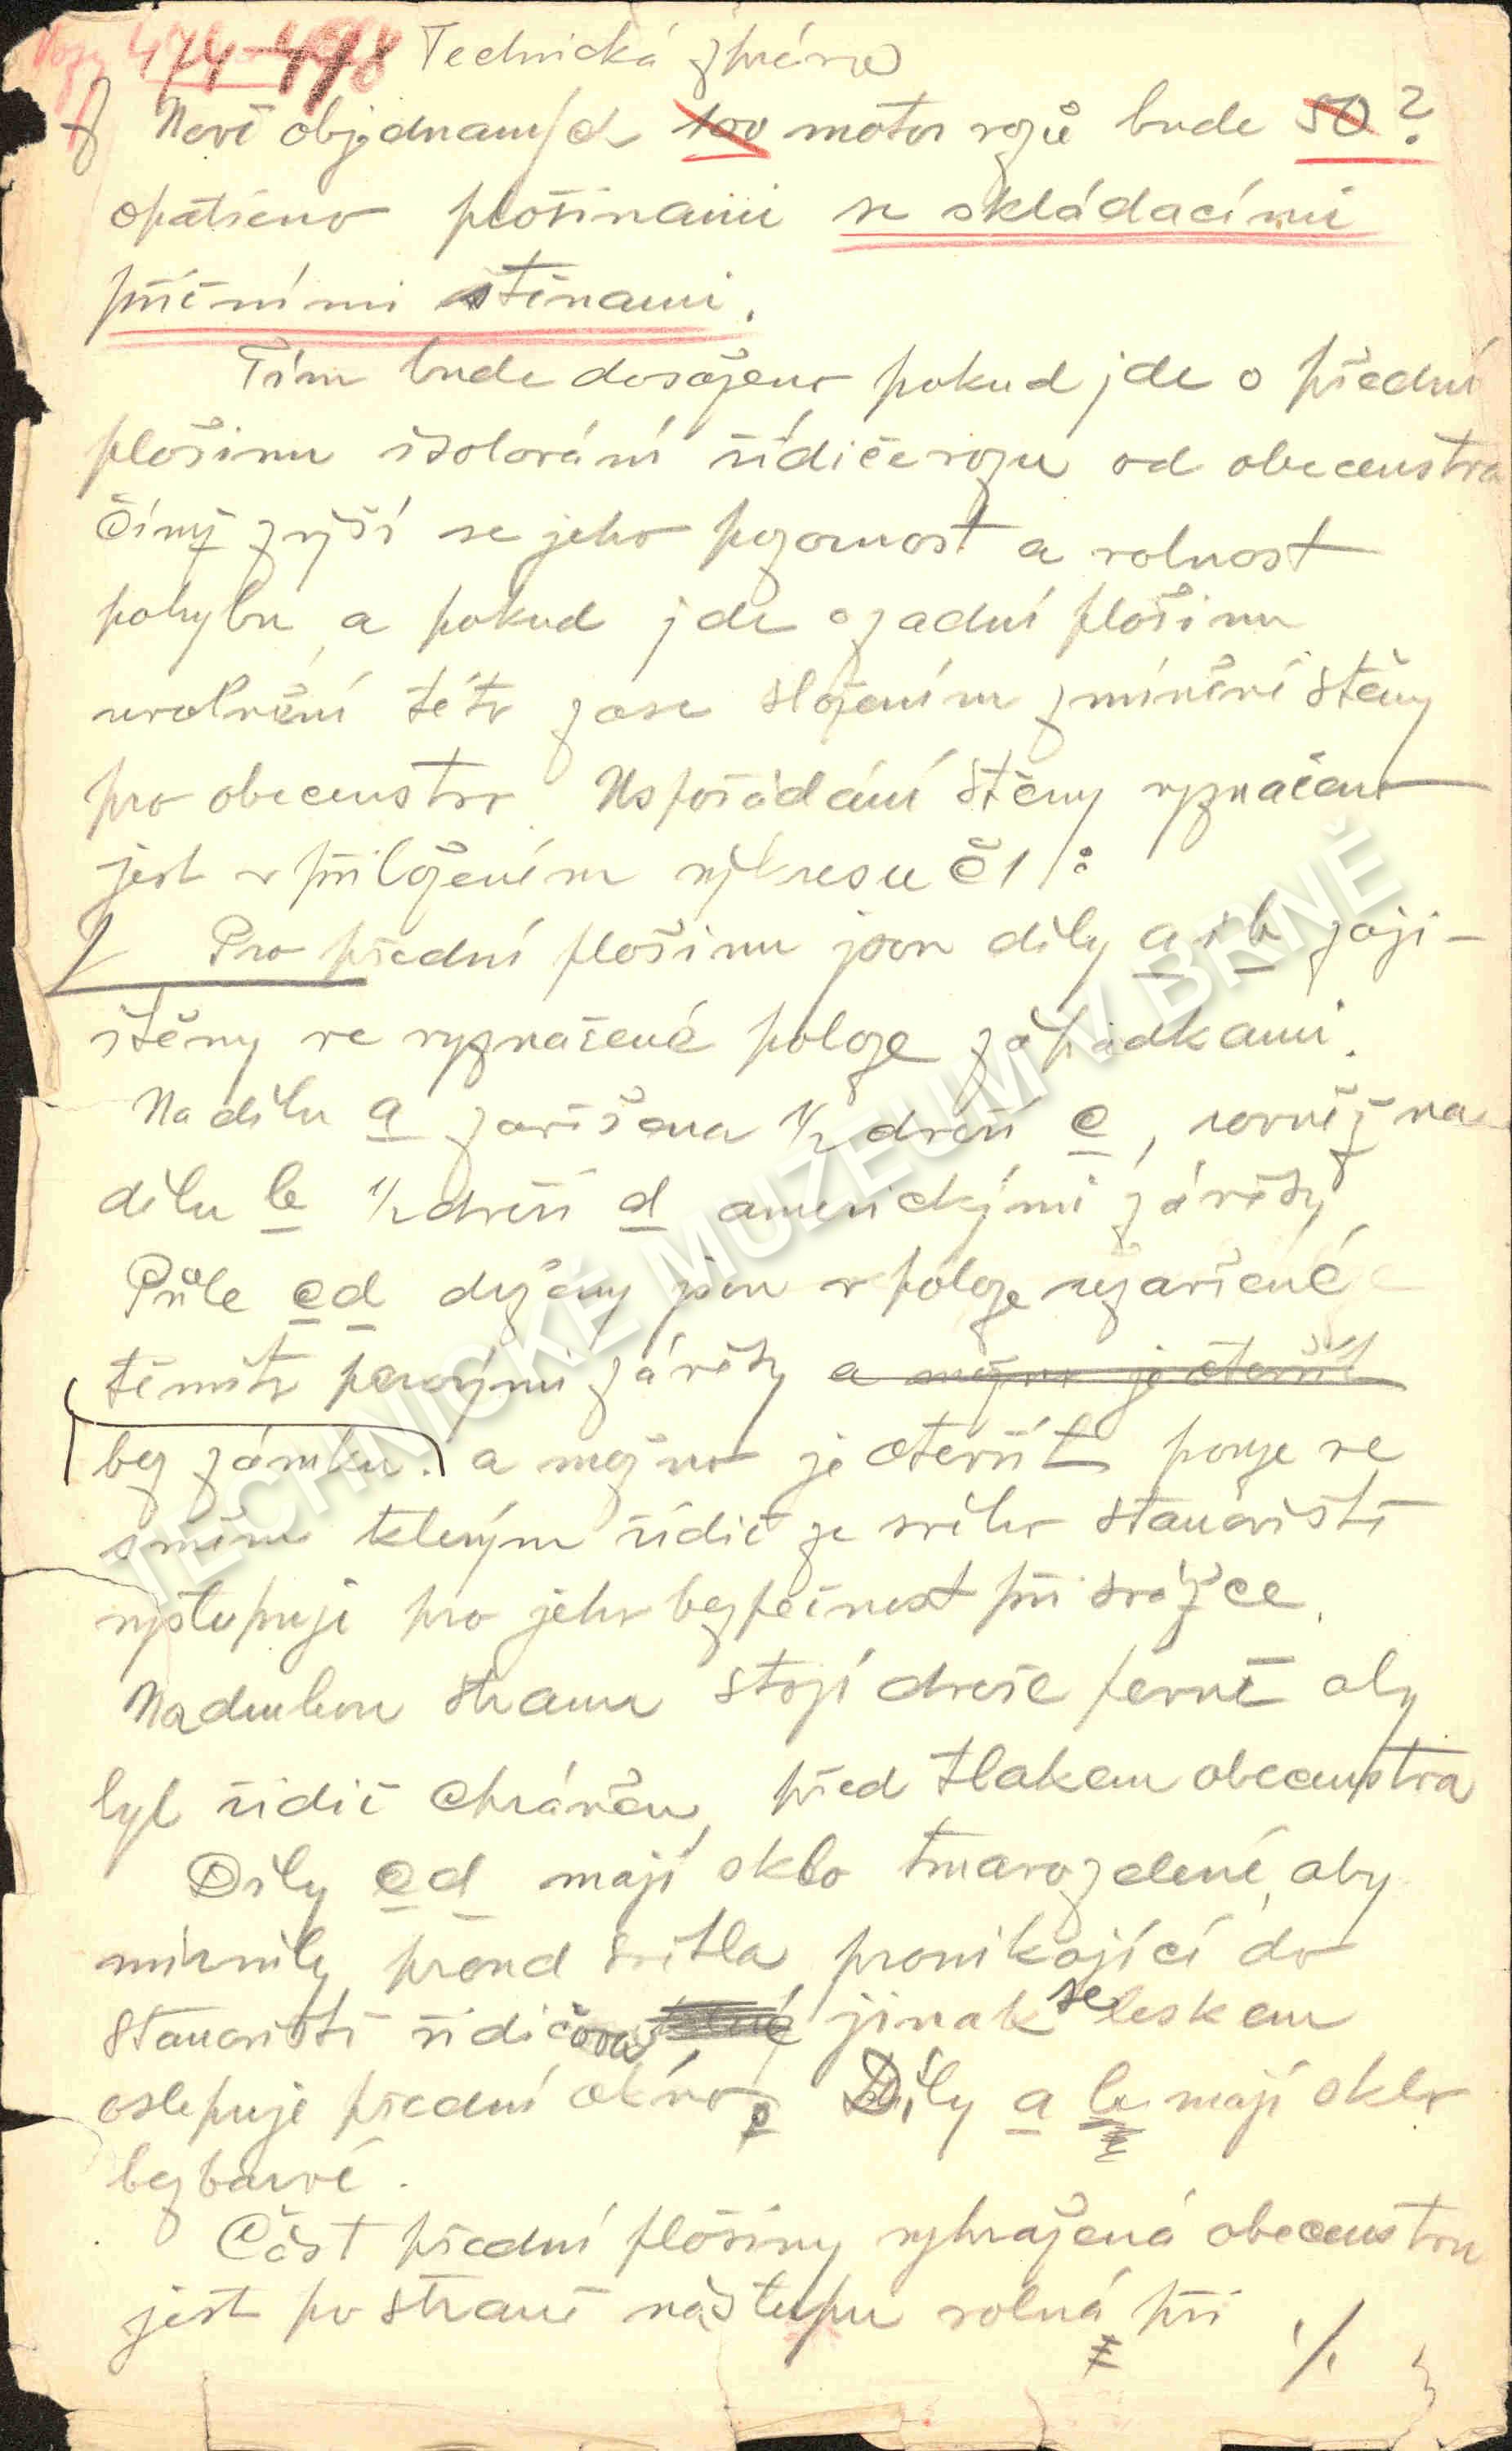 Vozy 474-498 Technická zpráva
Nově objednaných 100 motor vozů bude 50?
opatřeno plošinami se skládacími
příčními stěnami.
Tím bude dosaženo pokud jde o přední
plošinu isolování řídiče vozu od obecenstva
čímž zvýší se jeho pozornost a volnost
pohybu, a pokud jde o zadní plošinu
uvolnění této zase složením zmíněné stěny
pro obecenstvo. Uspořádání stěny vyznačeno
jest v přiloženém výkresu č 1:
Pro přední plošinu jsou díly a i b zaji-
štěny ve vyznačené poloze západkami.
Na dílu a zavěšena 1/2 dveří c, rovněž na
dílu b 1/2 dveří d americkými závěsy
Půle c d drženy jsou v poloze uzavřené
těmito pérovými závěsy a možno je otevřít
bez zámku. a možno je otevřít pouze ve
směru kterým řídič ze svého stanoviště
vystupuje pro jeho bezpečnost při srážce.
Na druhou stranu stojí dveře pevně aby
byl řidič chráněn před tlakem obecenstva
Díly c d mají sklo tmavozelené, aby
mírnily proud světla pronikající do
stanoviště řidičova jinak se leskem
oslepuje přední okno. Díly a b mají sklo
bezbarvé.
Část přední plošiny vyhražená obecenstvu
jest po straně nástupu volná při ./.
TECHNICKÉ MUZEUM V BRNĚ